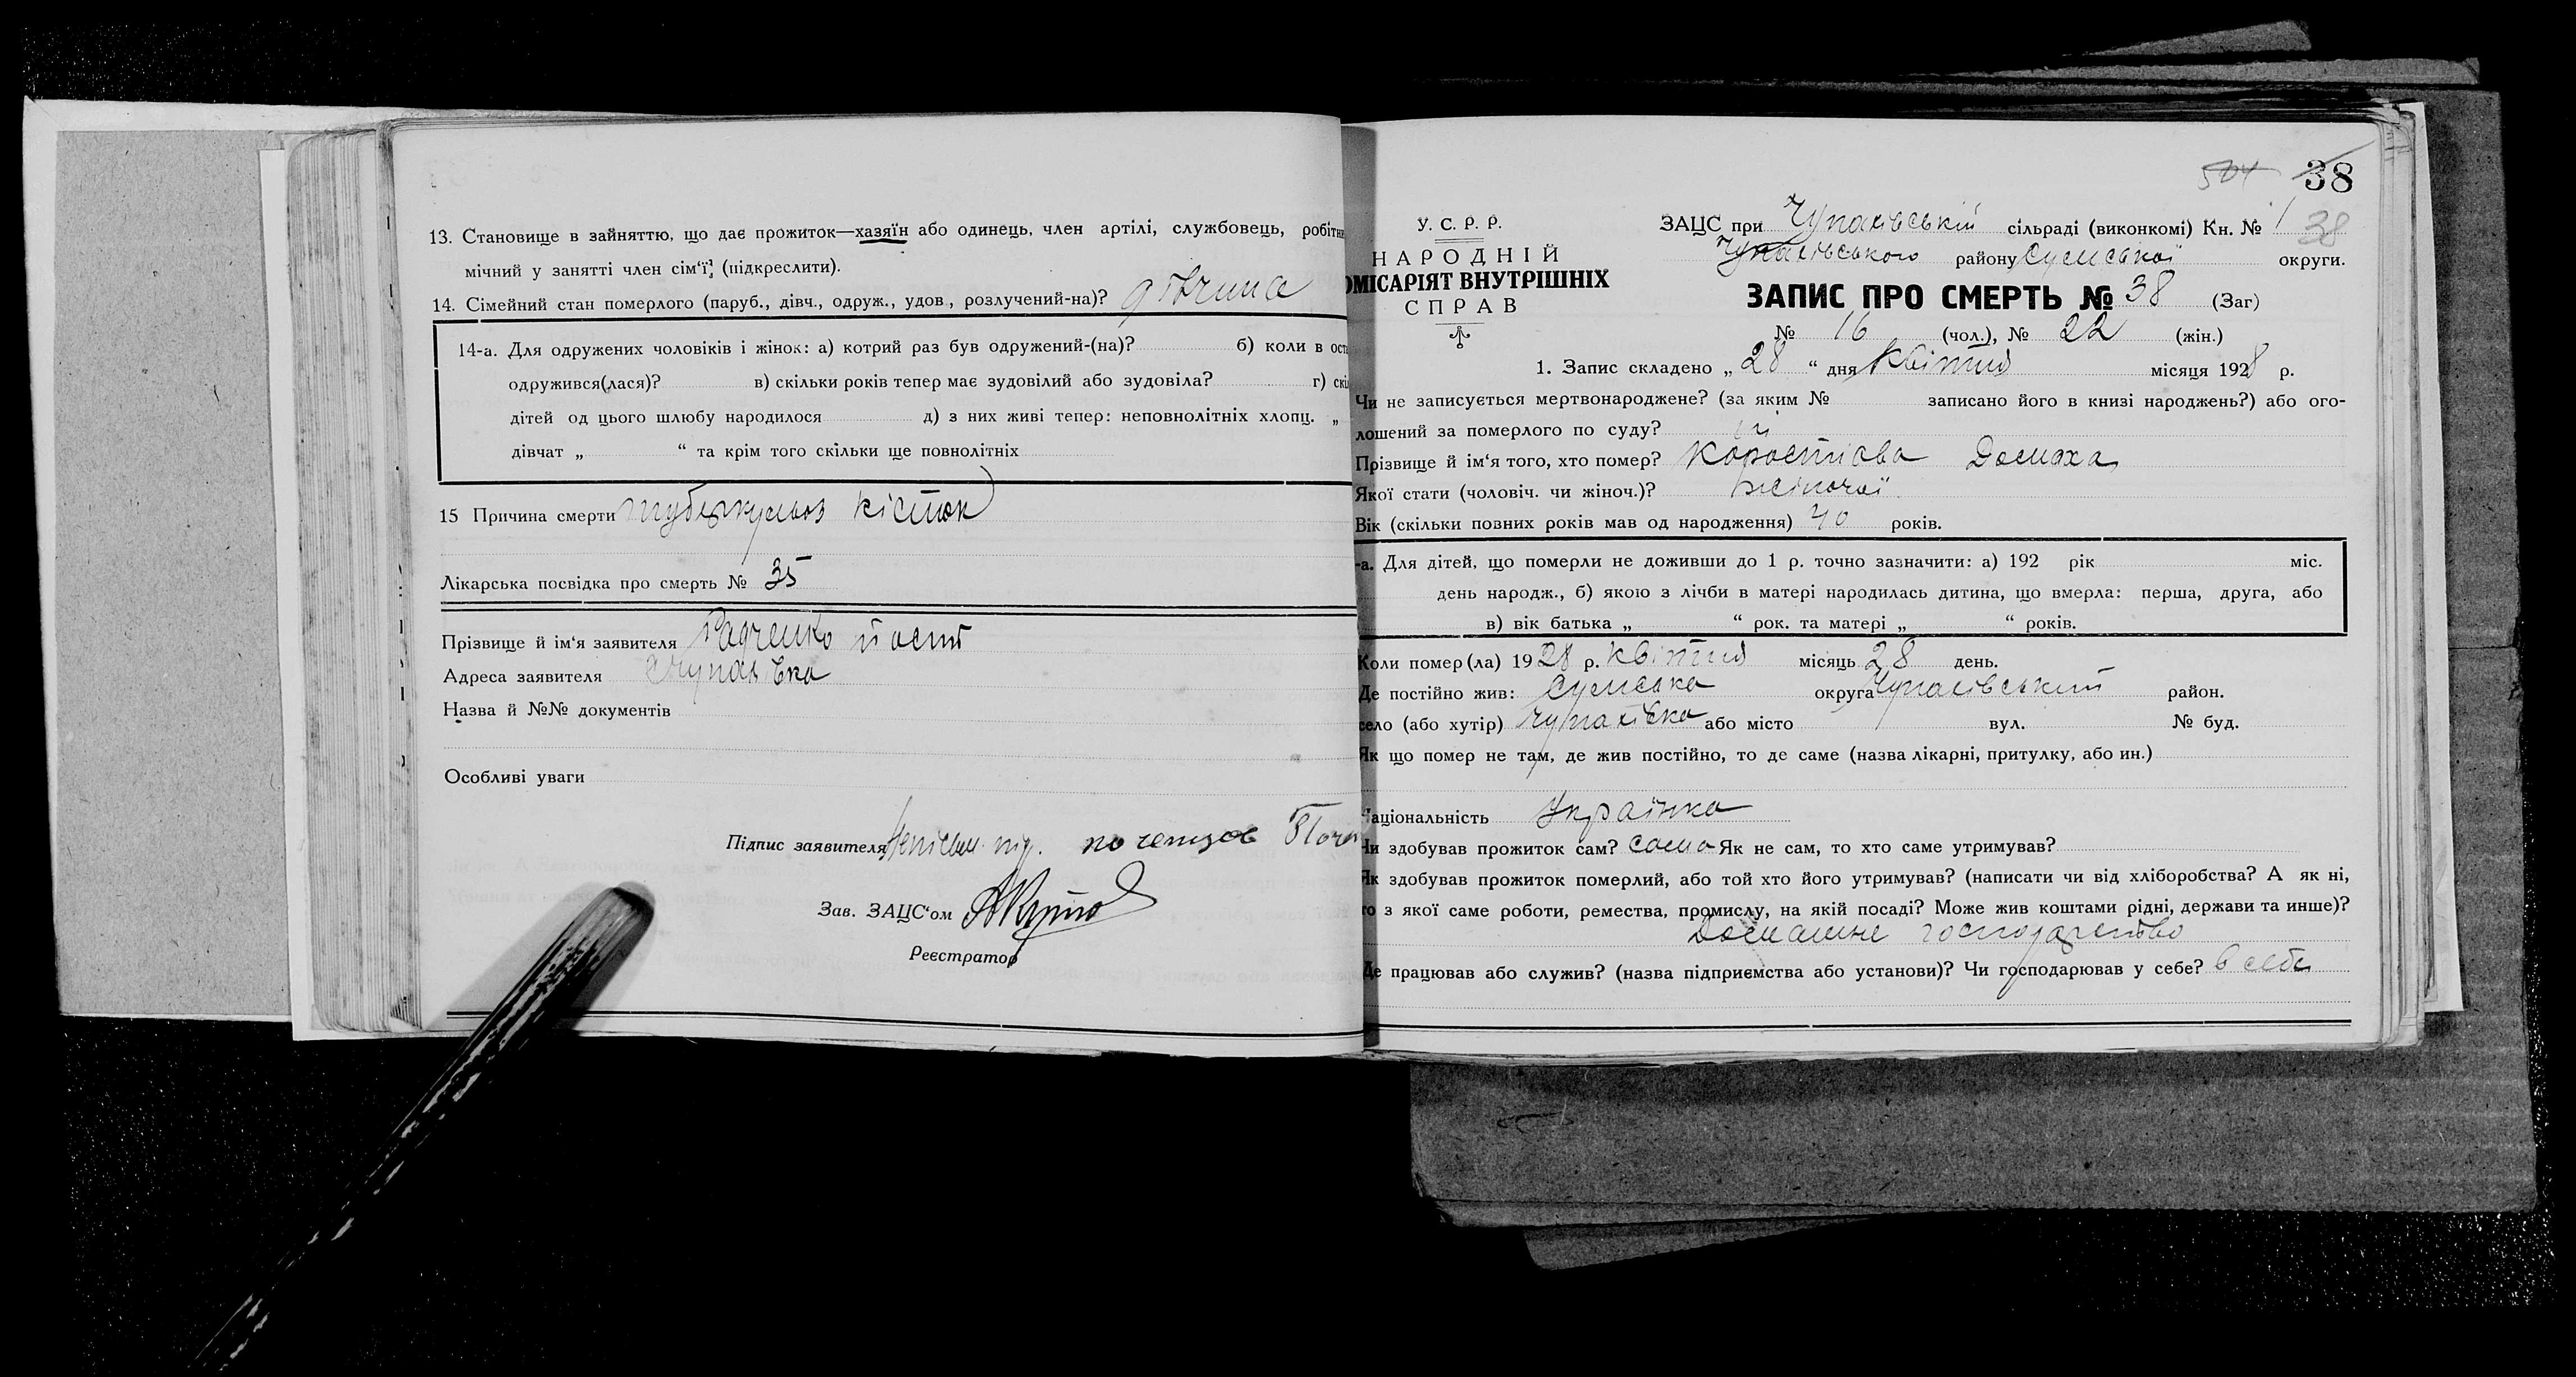 13. Становище в зайняттю, що дає прожиток—хазяїн або одинець, член артілі, службовець, робітни
мічний у занятті член сім'ї, (підкреслити).
14. Сімейний стан померлого (паруб., дівч., одруж., удов., розлучений-на)? дівчина
14-а. Для одружених чоловіків і жінок: а) котрий раз був одружений-(на)? б) коли в оста
одружився(лася)? в) скільки років тепер має зудовілий або зудовіла? г) скі
дітей од цього шлюбу народилося д) з них живі тепер: неповнолітніх хлопц. „
дівчат „ “ та крім того скільки ще повнолітніх
15 Причина смерти туберкульоз кісток
Лікарська посвідка про смерть № 35
Прізвище й ім'я заявителя Радченко
Адреса заявителя Чупахівка
Назва й №№ документів
Особливі уваги
Підпис заявителя
Зав. ЗАЦС'ом
Реєстратор
504 38
У. С. Р. Р.
НАРОДНІЙ
ОМІСАРІЯТ ВНУТРІШНІХ
СПРАВ
ЗАЦС при Чупахівській сільраді (виконкомі) Кн. № 1 38
Чупахівського району Сумської округи.
ЗАПИС ПРО СМЕРТЬ № 38 (Заг)
№ 16 (чол.), № 22 (жін.)
1. Запис складено „ 28 “ дня Квітня місяця 1928 р.
Чи не записується мертвонароджене? (за яким № записано його в книзі народжень?) або ого-
лошений за померлого по суду?
Прізвище й ім'я того, хто помер? Домаха
Якої стати (чоловіч. чи жіноч.)? жіночої
Вік (скільки повних років мав од народження) 40 років.
-а. Для дітей, що померли не доживши до 1 р. точно зазначити: а) 192 рік міс.
день народж., б) якою з лічби в матері народилась дитина, що вмерла: перша, друга, або
в) вік батька „ “ рок. та матері „ “ років.
Коли помер(ла) 1928 р. квітня місяць 28 день.
Де постійно жив: Сумська округа Чупахівський район.
село (або хутір) Чупахівка або місто вул. № буд.
Як що помер не там, де жив постійно, то де саме (назва лікарні, притулку, або ин.)
Національність Українка
Чи здобував прожиток сам? сама Як не сам, то хто саме утримував?
Як здобував прожиток померлий, або той хто його утримував? (написати чи від хліборобства? А як ні,
то з якої саме роботи, ремества, промислу, на якій посаді? Може жив коштами рідні, держави та инше)?
Домашнє господарство
Де працював або служив? (назва підприємства або установи)? Чи господарював у себе? в себе